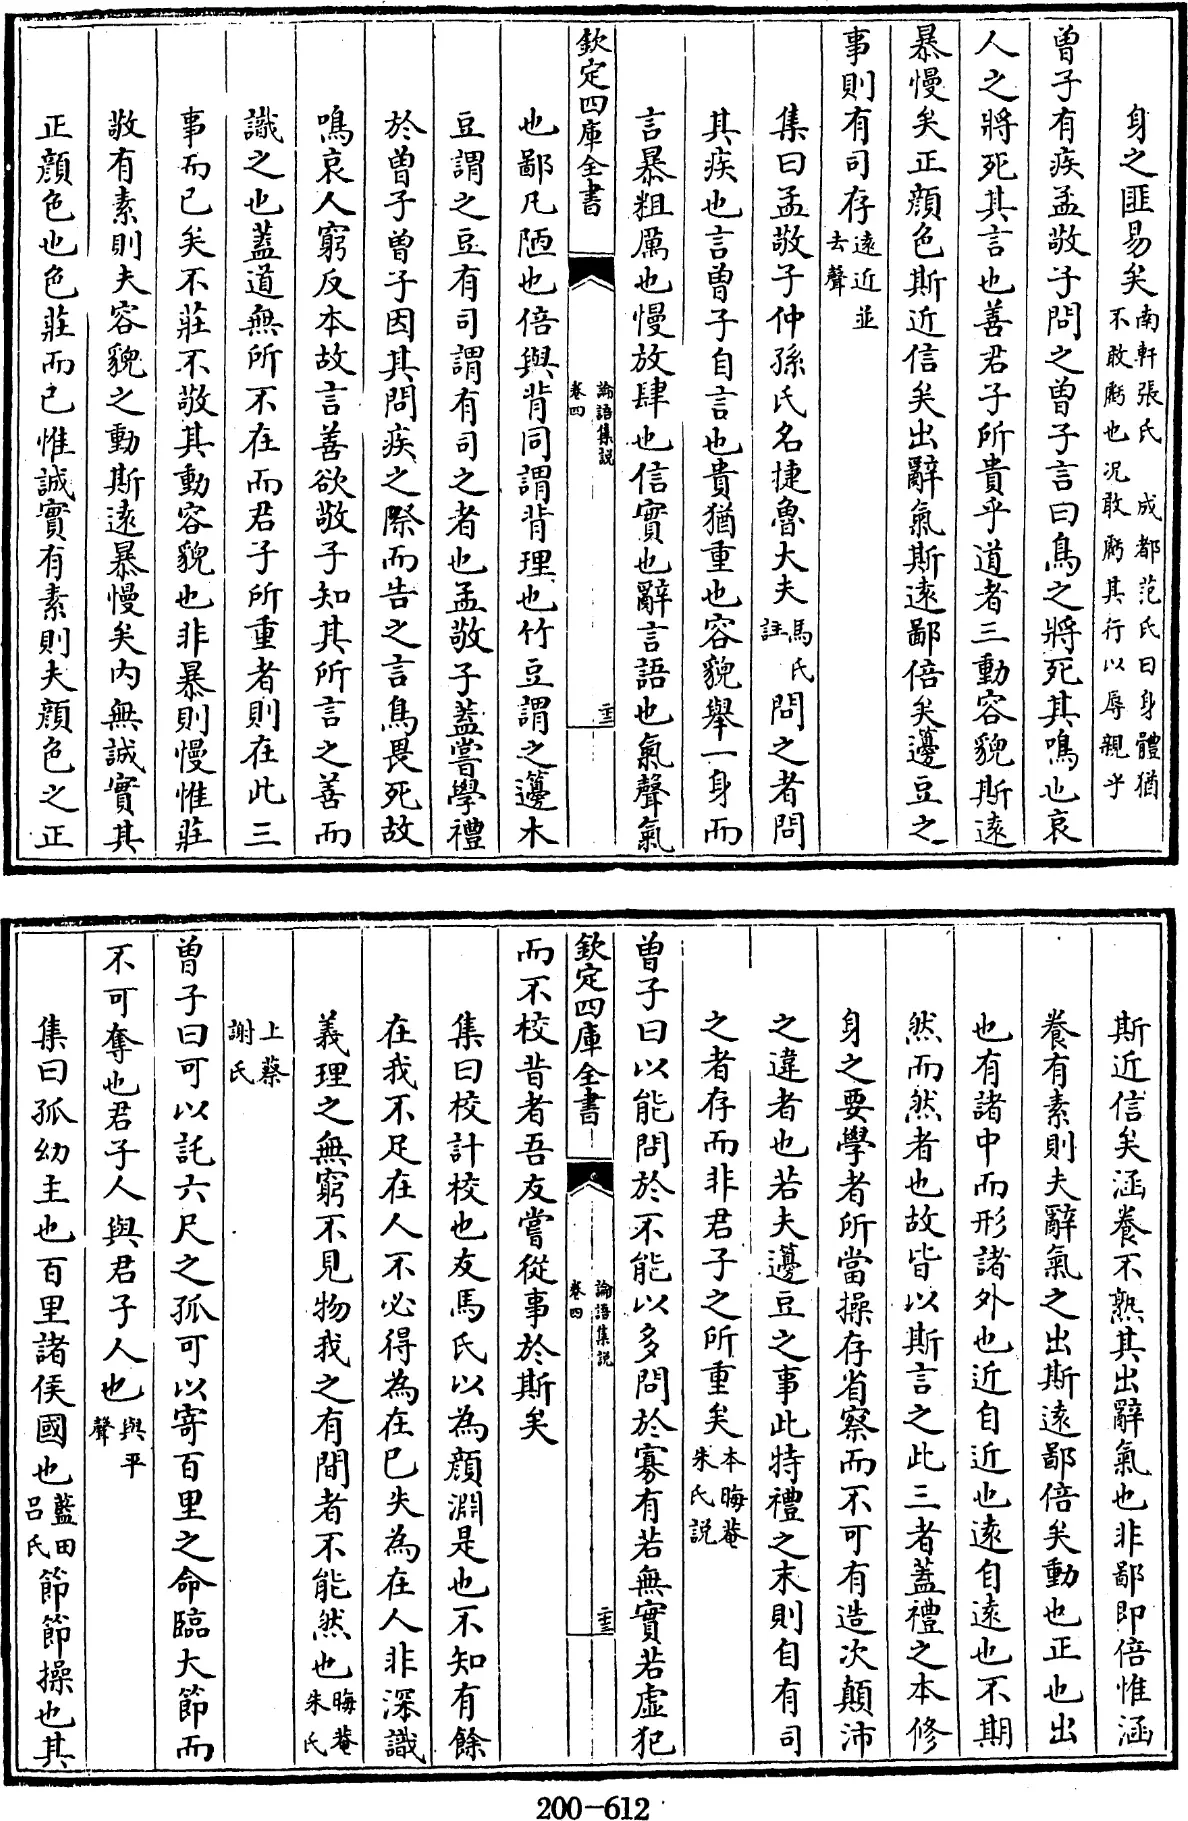 身之匪易矣南軒張氏 成都范氏曰身體猶不敢虧也況敢虧其行以辱親乎
曾子有疾孟敬子問之曾子言曰鳥之將死其鳴也哀
人之將死其言也善君子所貴乎道者三動容貌斯遠
暴慢矣正顔色斯近信矣出辭氣斯遠鄙倍矣籩豆之
事則有司存遠近並去聲
集曰孟敬子仲孫氏名捷魯大夫馬氏註問之者問
其疾也言曾子自言也貴猶重也容貌舉一身而
言暴粗厲也慢放肆也信實也辭言語也氣聲氣
欽定四庫全書 論語集說卷四 二十三
也鄙凡陋也倍與背同謂背理也竹豆謂之籩木
豆謂之豆有司謂有司之者也孟敬子蓋嘗學禮
於曾子曾子因其問疾之際而告之言鳥畏死故
鳴哀人窮反本故言善欲敬子知其所言之善而
識之也蓋道無所不在而君子所重者則在此三
事而已矣不莊不敬其動容貌也非暴則慢惟莊
敬有素則夫容貌之動斯遠暴慢矣内無誠實其
正顔色也色莊而已惟誠實有素則夫顔色之正
斯近信矣涵養不熟其出辭氣也非鄙即倍惟涵
養有素則夫辭氣之出斯遠鄙倍矣動也正也出
也有諸中而形諸外也近自近也遠自遠也不期
然而然者也故皆以斯言之此三者蓋禮之本修
身之要學者所當操存省察而不可有造次顛沛
之違者也若夫籩豆之事此特禮之末則自有司
之者存而非君子之所重矣本晦菴朱氏說
曾子曰以能問於不能以多問於寡有若無實若虛犯
欽定四庫全書 論語集說卷四 二十三
而不校昔者吾友嘗從事於斯矣
集曰校計校也友馬氏以為顔淵是也不知有餘
在我不足在人不必得為在已失為在人非深識
義理之無窮不見物我之有間者不能然也晦菴朱氏
上蔡謝氏
曾子曰可以託六尺之孤可以寄百里之命臨大節而
不可奪也君子人與君子人也與平聲
集曰孤幼主也百里諸侯國也藍田呂氏節節操也其
200-612